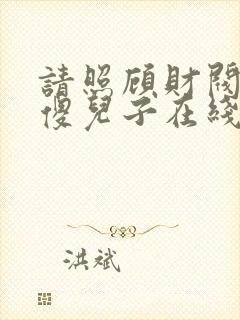 請照顧財閥
傻兒子在綫
洪斌